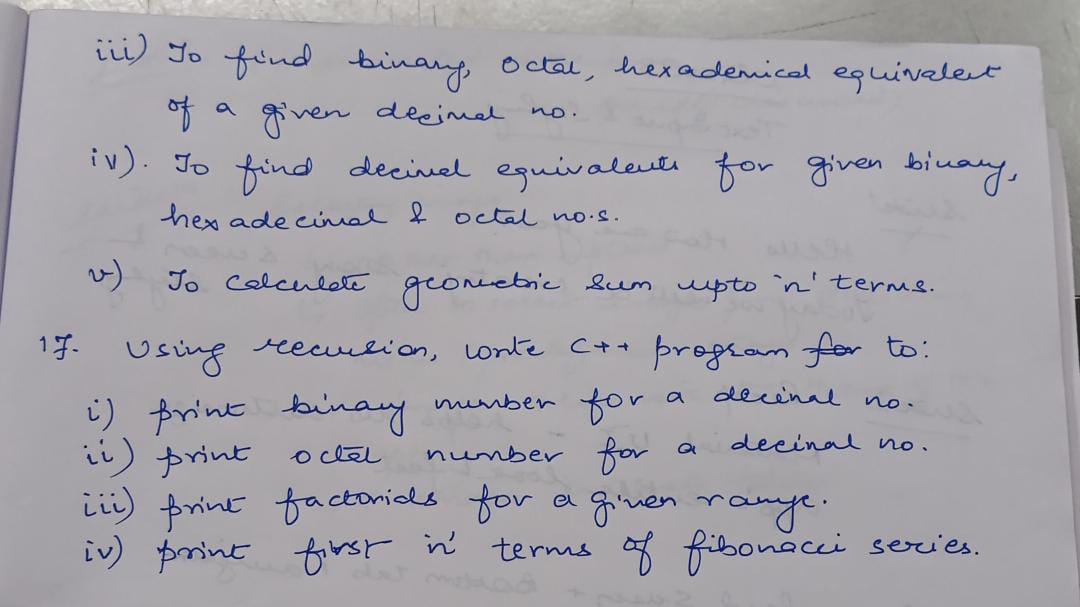 iii) To find binary, octal, hexademical equivalent
of a given decimal no.
iv). To find decimal equivalents for given binary,
hexadecimal & octal no.s.
v) To calculate geometric sum upto 'n' terms.
17. Using recursion, write C++ program for to:
i) print binary number for a decimal no.
ii) print octal number for a decimal no.
iii) print factorials for a given range.
iv) print first 'n' terms of fibonacci series.